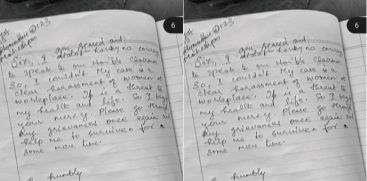 6
Sir, I am scared and
having no courage
to speak to our Hon'ble Chairman
So, I couldn't. My case is a
clear harassment of women at
workplace. It is a threat to
my health and life. So I beg
your mercy. Please go through
my grievances once again and
help me to survive for a
some more time.
humbly
6
Sir, I am scared and
having no courage
to speak to our Hon'ble Chairman
So, I couldn't. My case is a
clear harassment of women at
workplace. It is a threat to
my health and life. So I beg
your mercy. Please go through
my grievances once again and
help me to survive for a
some more time.
humbly